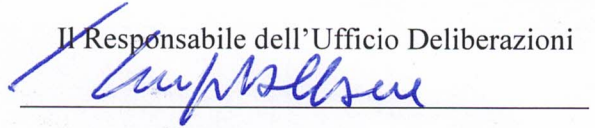 Il Responsabile dell'Ufficio Deliberazioni